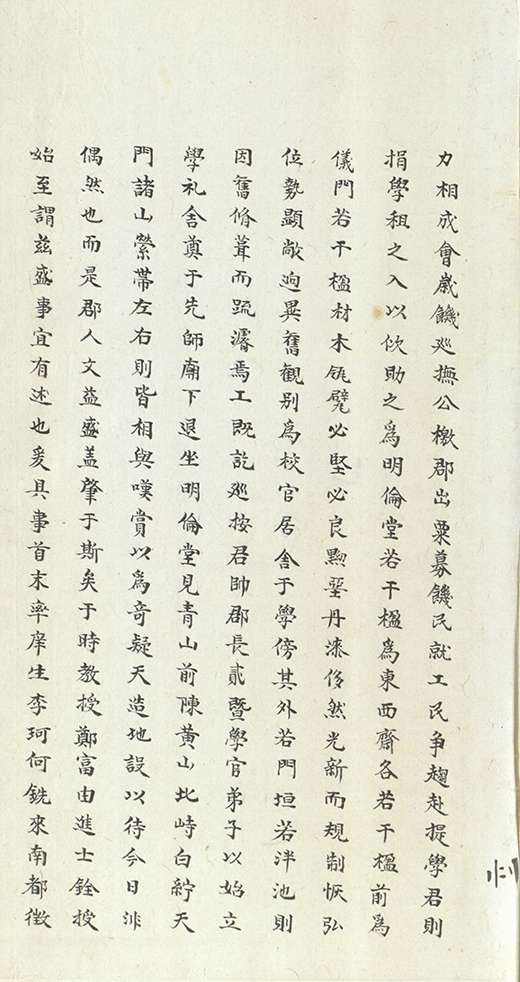 力相成會歲饑巡撫公檄郡出粟募饑民就工民爭趨赴提學君則
捐學租之入以佽助之為明倫堂若干楹為東西齋各若干楹前為
儀門若干楹材木瓴甓必堅必良黝堊丹漆侈然光新而規制恢弘
位勢顯敞逈異舊觀別為校官居舍于學傍其外若門垣若泮池則
因舊脩葺而疏濬焉工既訖巡按君帥郡長貳暨學官弟子以始立
學礼舍奠于先師廟下退坐明倫堂見青山前陳黃山北峙白紵天
門諸山縈帶左右則皆相與嘆賞以為奇疑天造地設以待今日非
偶然也而是郡人文益盛盖肇于斯矣于時教授鄭富由進士銓授
始至謂茲盛事宜有述也爰具事首末率庠生李珂何銑來南都徵